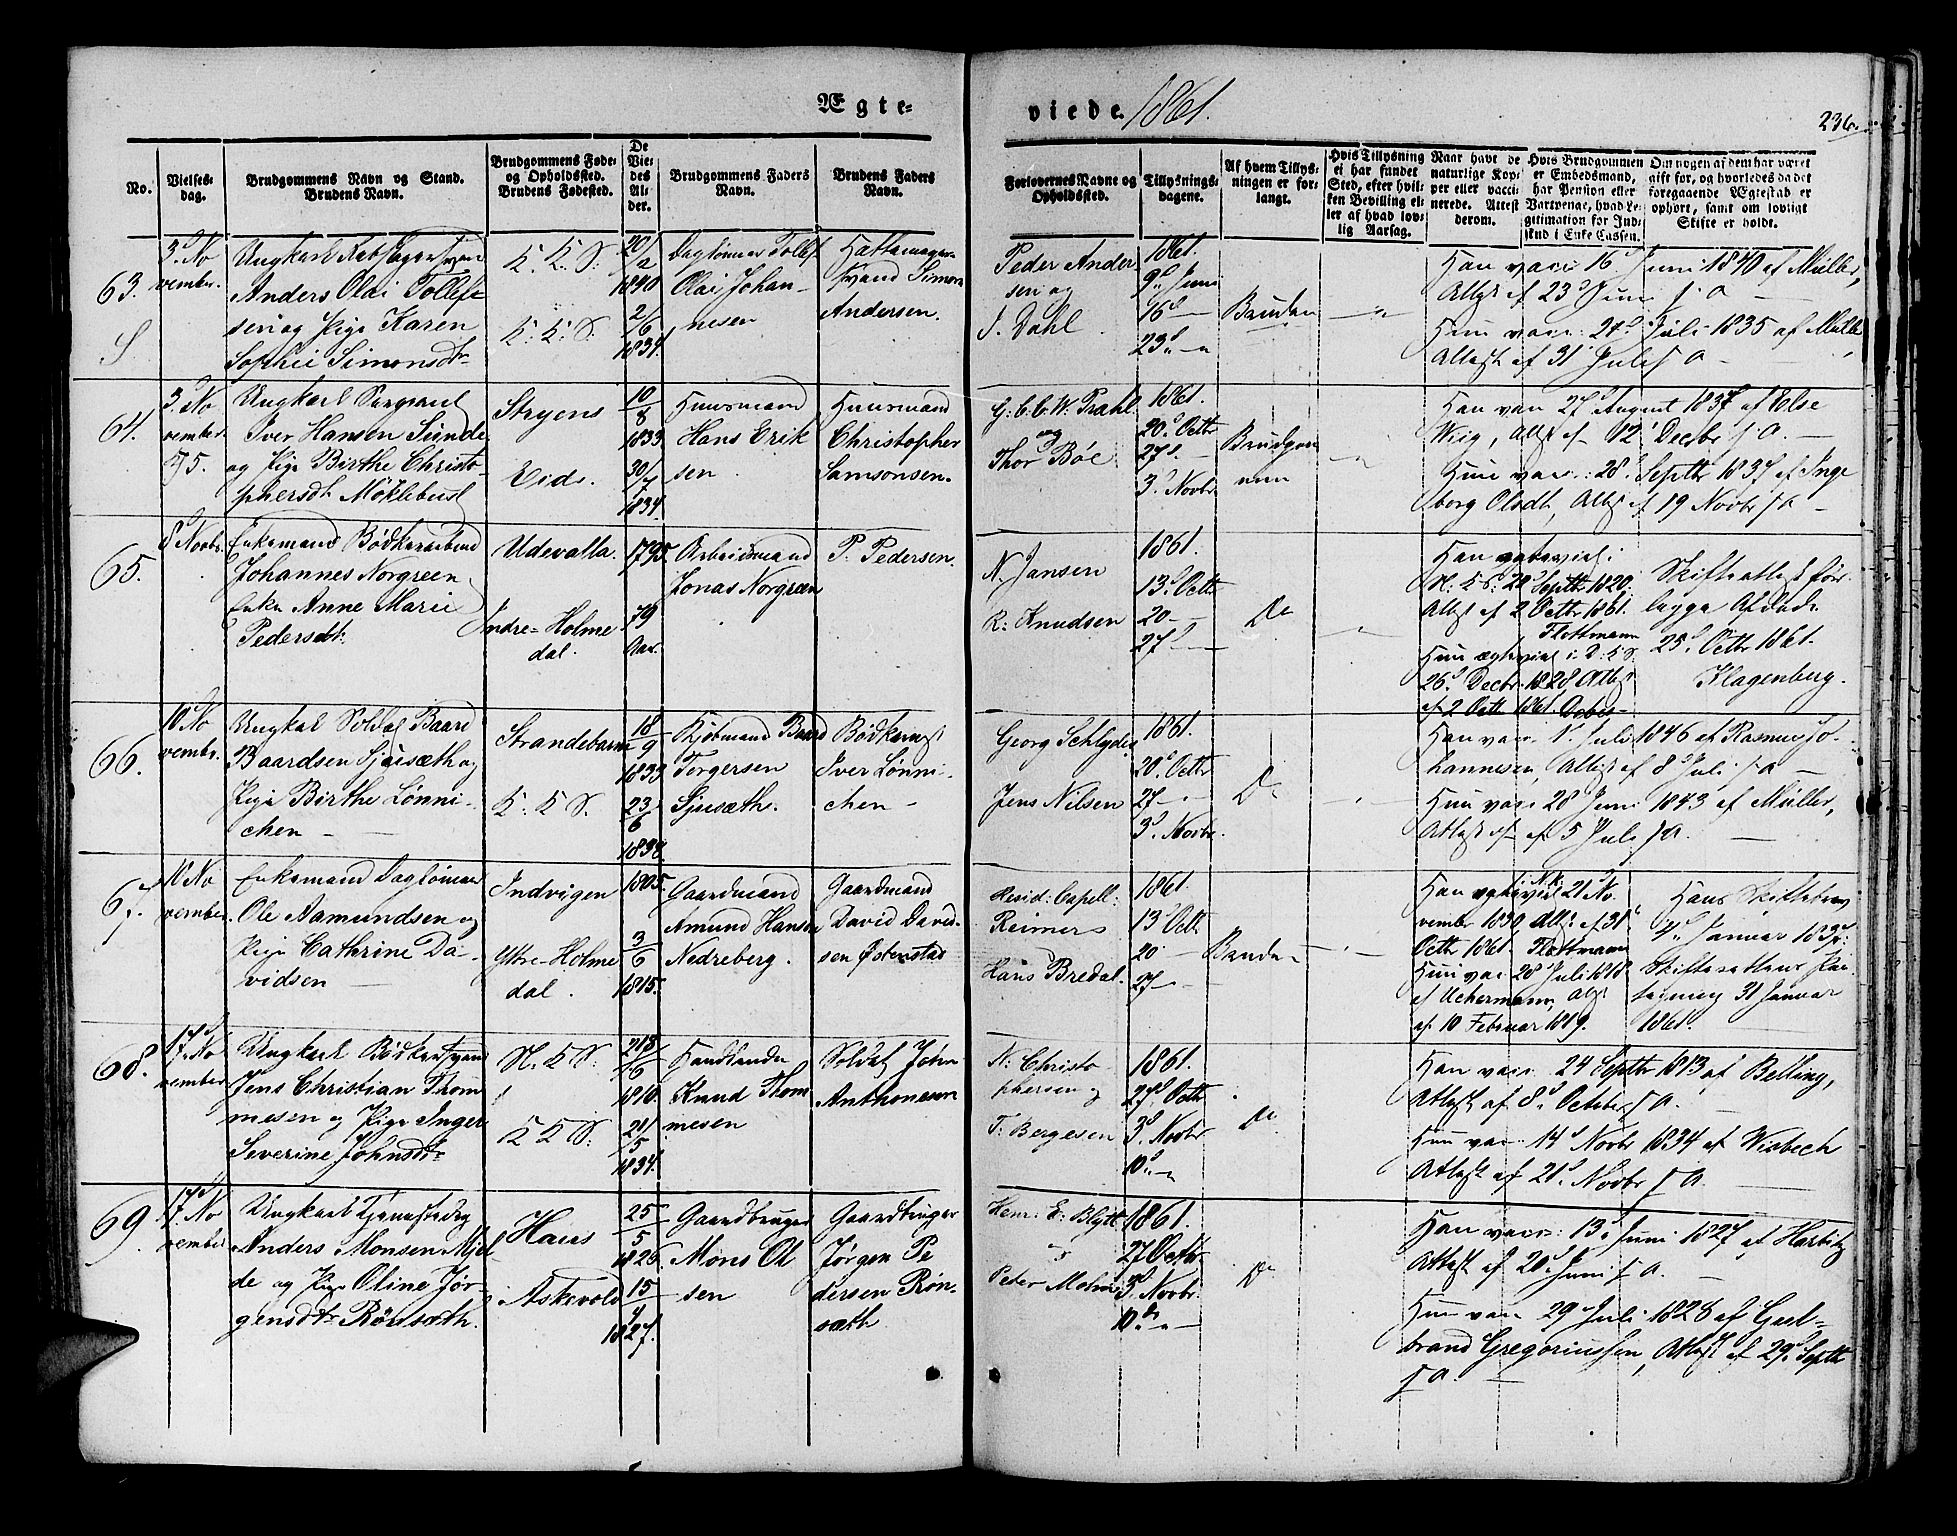 Ægte=
viede. 1861.
236.
No.
Vielses-
dag.
Brudgommens Navn og Stand.
Brudens Navn.
Brudgommens Føde-
og Opholdssted.
Brudens Fødested.
De
Vie-
des
Al-
der.
Brudgommens Faders
Navn.
Brudens Faders
Navn.
Forlovernes Navne og
Opholdssted.
Tillysnings-
dagene.
Af hvem Tillys-
ningen er for-
langt.
Hvis Tillysning
ei har fundet
Sted, efter hvil-
ken Bevilling el-
ler af hvad lov-
lig Aarsag.
Naar havt de
naturlige Kop-
per eller vacci-
nerede. Attest
derom.
Hvis Brudgommen
er Embedsmand,
har Pension eller
Vartpenge, hvad Le-
gitimation for Ind-
skud i Enke Cassen.
Om nogen af dem har været
gift før, og hvorledes da det
foregaaende Ægteskab er
ophørt, samt om lovligt
Skifte er holdt.
63.
S
3. No
vember.
Ungkarl
Anders Olai Tollef
sen og Pige Karen
Sophie Simonsdt
K. K. S.
K. K. S.
20/2
1840
2/6
1834.
Daglønner Tollef
Olai Johan-
nesen
Hattemager-
svend Simon
Andersen.
Peder Ander
sen og
J. Dahl.
1861.
9d Juni
16d —
23d —
Bruden
Han vacc. 16d Juni 1840 af Müller,
Attest af 23d Juni s. A. —
Hun vacc. 24d Juli 1835 af Müller,
Attest af 31 Juli s. A —
64.
3. No
vember.
75.
Ungkarl Sergeant
Iver Hansen Sunde
og Pige Birthe Christo
phersdt. Möklebust
Stryens
Eids.
10/8
1833
30/7
1834.
Huusmand
Hans Erik
sen
Huusmand
Christopher
Samsonsen.
G. C. C. W. Prahl
og
Thor Böe
1861.
20d Octbr
27d —
3d Novbr
Brudgom
men
Han vacc 27d August 1837 af Else
Wiig, Attest af 12 Decbr s. A. —
Hun vacc. 28d Septbr 1837 af Inge
borg Olsdt, Attest af 19 Novbr s. A —
65.
8 Novbr.
Enkemand Bödkersvend
Johannes Norgreen
Enke Anne Marie
Pedersdt.
Udevalla
Indre-Holme
dal.
1795.
79
Aar.
Arbeidsmand
Jonas Norgreen
P. Pedersen.
N. Jansen
R. Knudsen
1861.
13d Octbr
20 —
27d —
Do
Han ægteviet i
N. K. d. 28d Septbr 1820.
Attest af 2 Octbr 1861.
Flottmann
Hun ægteviet i D. K. d.
26d Decbr. 1828, Attest
af 2 Octb 1861. Debes —
Skifteattest fore
lagge af dato
25d Octbr 1861.
Klagenberg.
66.
10 No
vembr.
Ungkarl Soldat Baard
Baardsen Sjusæth og
Pige Birthe Lönni-
chen —
Strandebarm
K. K. S.
18/9
1833
23/6
1838
Kjöbmand Baard
Torgersen
Sjusæth.
Bödkermst
Iver Lönni-
chen —
Georg Schlyder
Jens Nilsen
1861.
20d Octbr
27 —
3d Novbr.
Do
Han vacc. 1d Juli 1846 af Rasmus Jo-
hannesen, Attest af 8d Juli s. A —
Hun vacc 28 Juni 1843 af Müller,
Attest af 5 Juli s. A. —
67.
10 No
vember.
Enkemand Daglönner
Ole Aamundsen og
Pige Cathrine Da-
vidsen —
Indvigen
Ytre-Holme
dal.
1805.
3/6
1815.
Gaardmand
Amund Hansen
Nedreberg.
Gaardmand
David David-
sen Östenstad
Resid: Capell:
Reimers
Hans Bredal.
1861.
13d Octb
20 —
27 —
Bruden
Han ægteviet N.K. 21d No
vember 1830, Attest af 31
Octbr 1861. Flottmann
Hun vacc 28d Juli 1818
af Uchermann, Attest
af 10 Februar 1819.
Hans Skiftebrev
4d Januar
Skifterettens Paa
tegning 31 Januar
1861.
68.
17. No
vember
Ungkarl Bödkersvend
Jens Christian Thom
mesen og Pige Inger
Severine Johnsdt
N. K. S.
K. K. S.
1810.
21/5
1834.
Handlende
Knud Thom
mesen
Soldat John
Anthonesen
N. Christo
phersen og
T. Bergesen
1861.
27d Octb
3d Novbr
10d —
Do
Han vacc. 24 Septbr 1813 af Belling,
Attest af 8d October s. A. —
Hun vacc. 14d Novbr 1834 af Wisbech
Attest af 21d Novbr s. A. —
69.
17. No
vember
Ungkarl Tjenestedreng
Anders Monsen Mjel
de og Pige Oline Jör-
gensdtr Rönsæth.
Haus
Askevold
25/5
1826
15/4
1827.
Gaardbruger
Mons Ol
sen
Gaardbruger
Jörgen Pe
dersen Rön-
sæth.
Henr: E: Blytt
Peter Mohn
1861.
27 Octbr
3d Novbr.
10d —
Do
Han vacc. 13d Juni 1827 af Hartvig
Attest af 20d Juni s. A. —
Hun vacc 29 Juli 1828 af Gul-
brand Gregoriussen, Attest af 29d Septbr
s. A. —